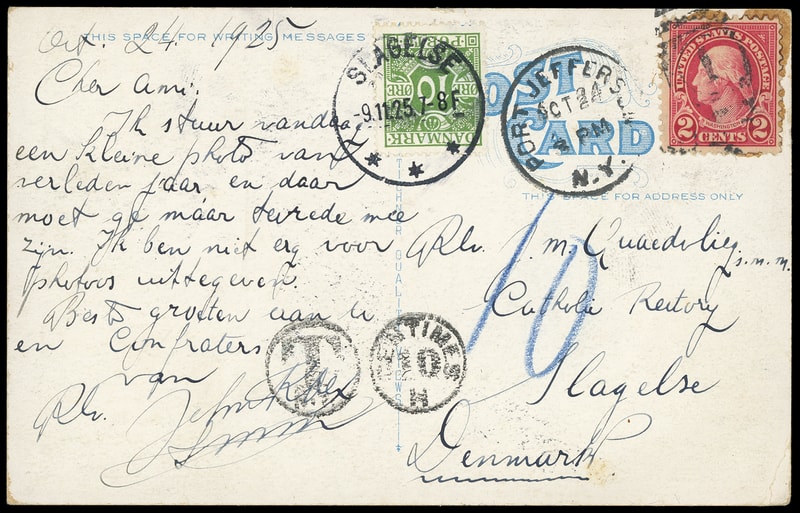 Oct. 24 1925
THIS SPACE FOR WRITING MESSAGES
Cher Ami.
Ik stuur vandaag
een kleine photo van
verleden jaar en daar
moet ge máár tevrede mee
zijn. Ik ben niet erg voor
photoos uittegeven.
Best groeten aan u
en Confraters
van
Rev. John
SLAGELSE
-9.11.25. 7-8F
DANMARK
10
ØRE ØRE
PORTO
DANMARK
POST
CARD
PORT JEFFERSON
OCT 24
PM
N.Y.
UNITED STATES POSTAGE
WASHINGTON
2 CENTS 2
THIS SPACE FOR ADDRESS ONLY
Rev. J. M. Quaedvlieg
s.m.m.
Catholic Rectory
Slagelse
Denmark
10
T
CENTIMES
20
N